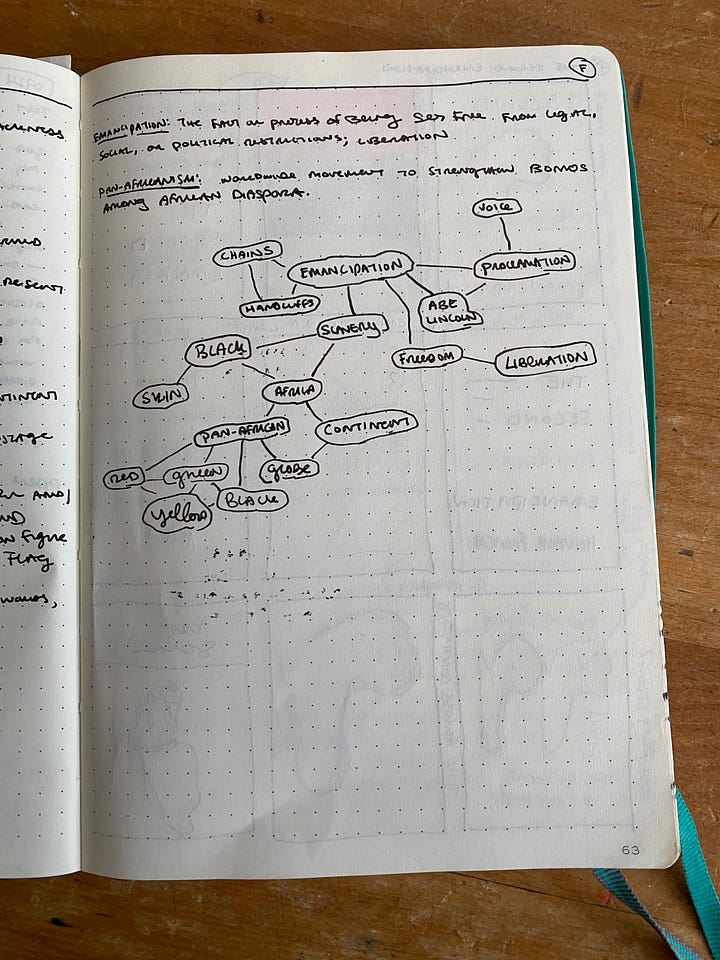 F
EMANCIPATION: THE FACT OR PROCESS OF BEING SET FREE FROM LEGAL,
SOCIAL, OR POLITICAL RESTRICTIONS; LIBERATION
PAN-AFRICANISM: WORLDWIDE MOVEMENT TO STRENGTHEN BONDS
AMONG AFRICAN DIASPORA.
VOICE
CHAINS
EMANCIPATION
PROCLAMATION
HANDCUFFS
ABE
LINCOLN
SLAVERY
BLACK
FREEDOM
LIBERATION
SKIN
AFRICA
PAN-AFRICAN
CONTINENT
RED
green
globe
BLACK
Yellow
FIGURE
FLAG
63